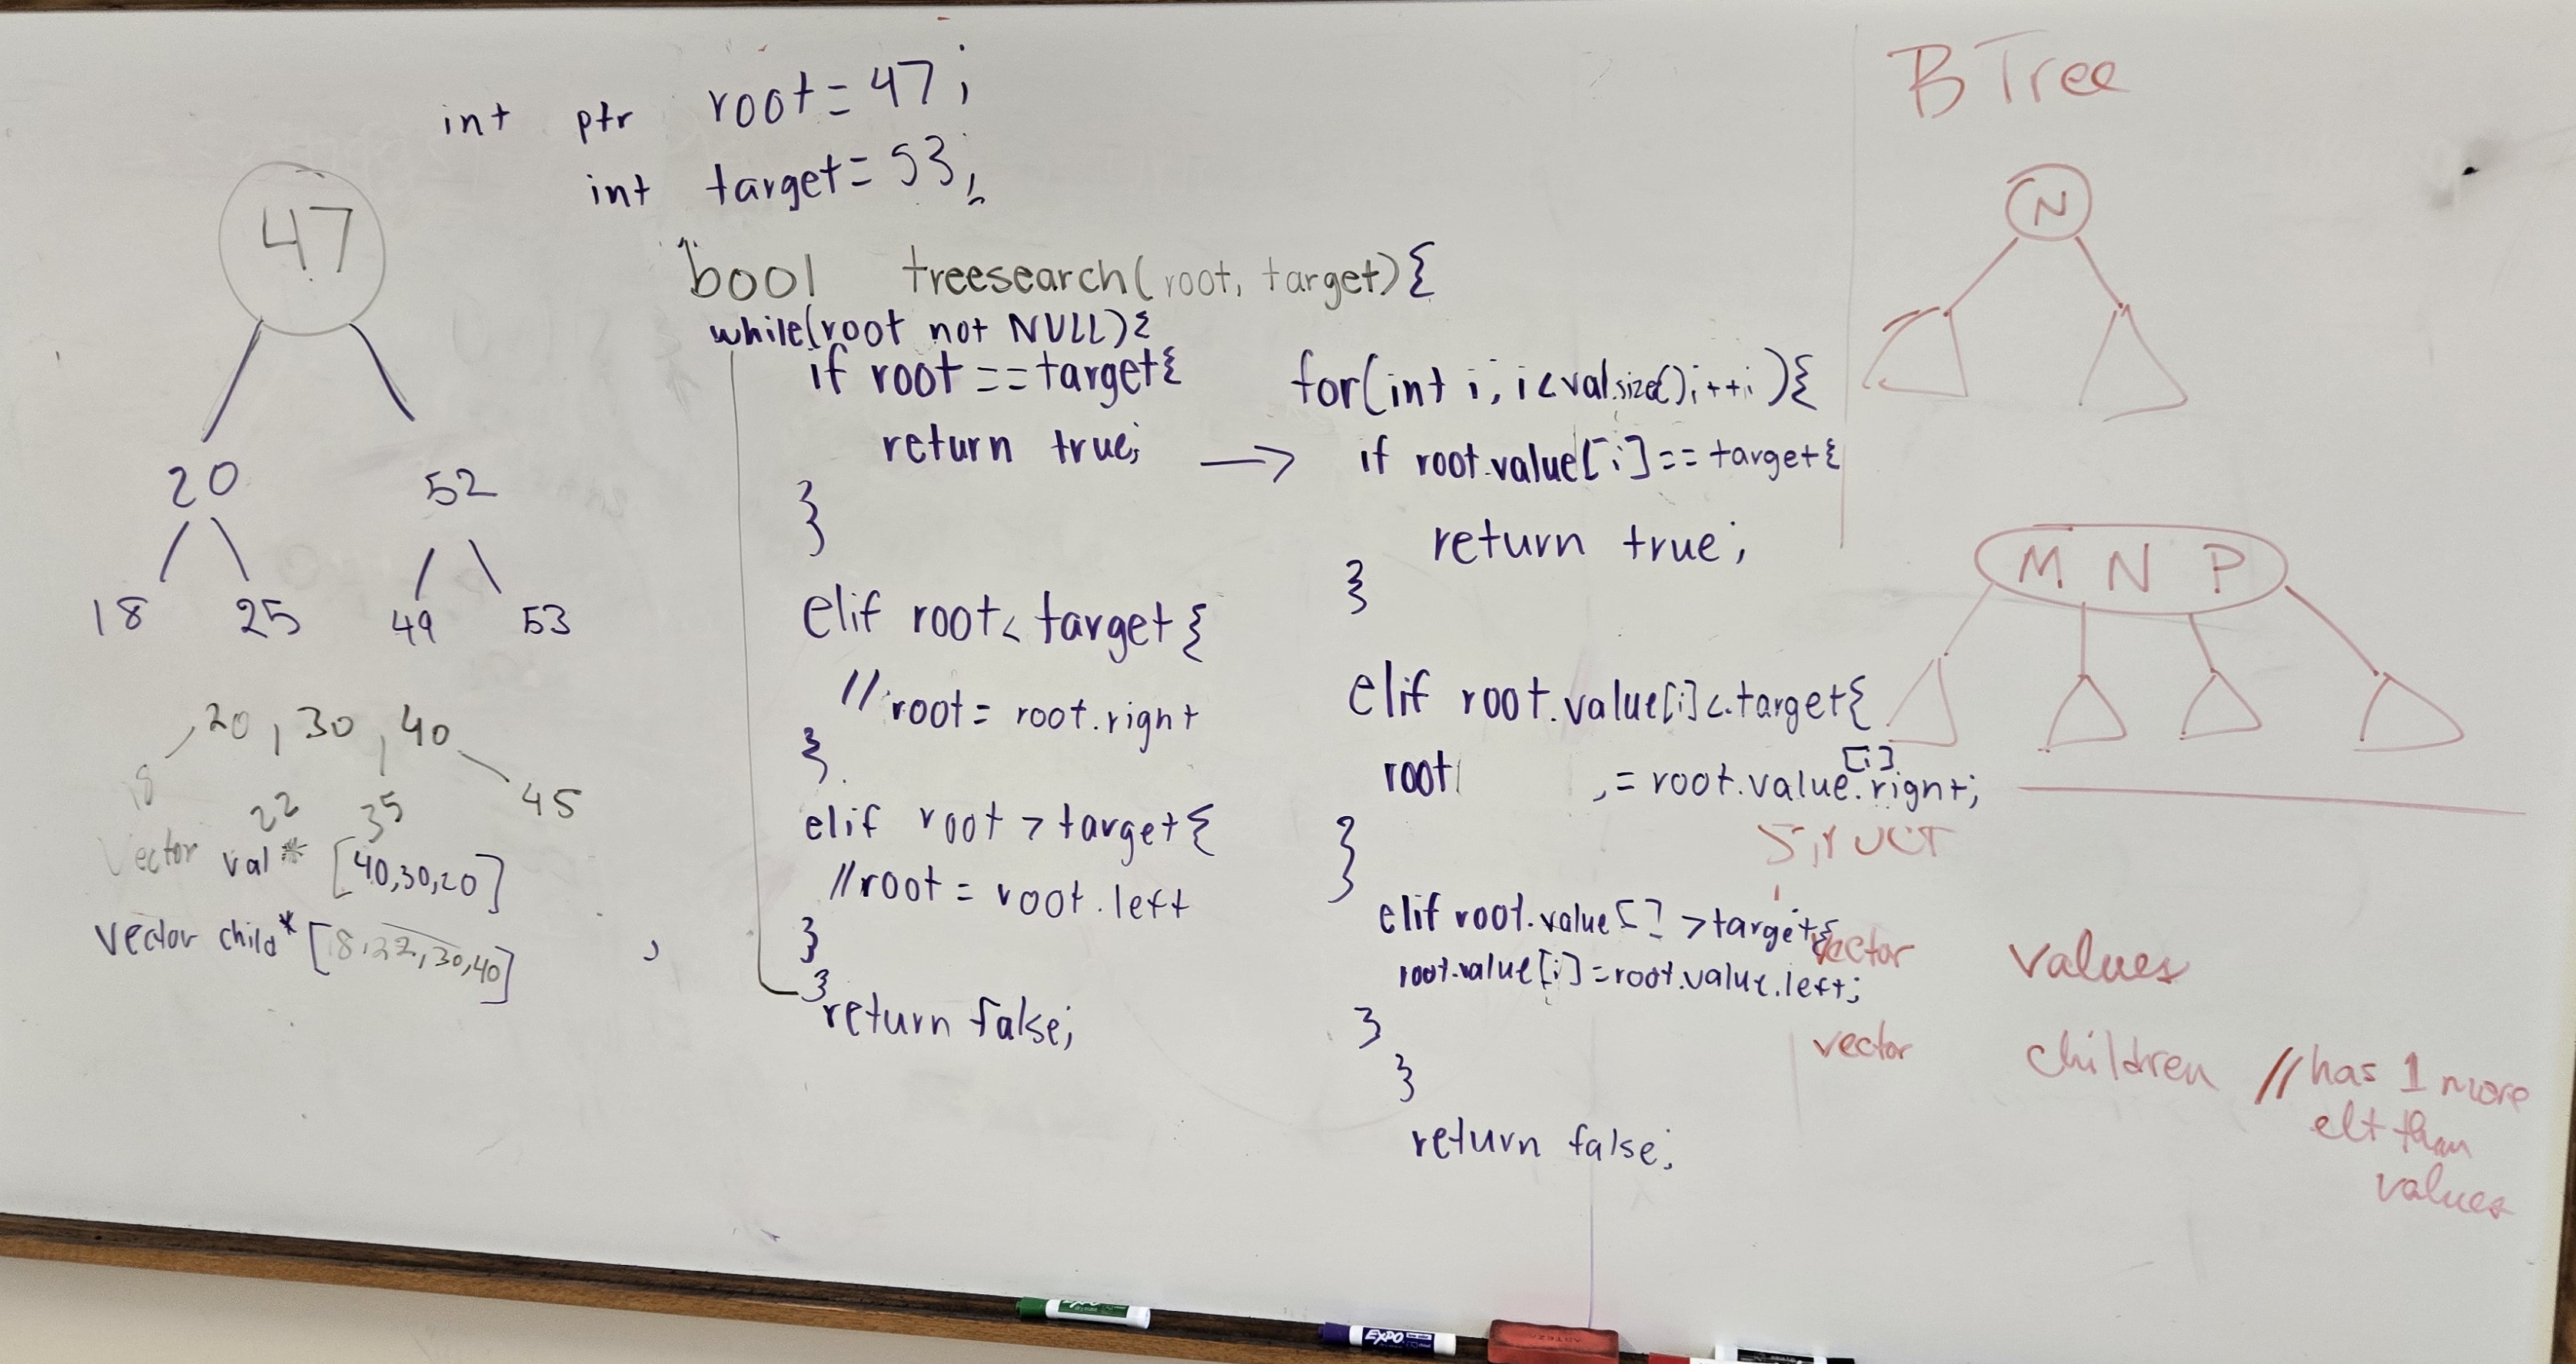 int ptr root = 47;
int target = 53;
47
20 52
18 25 49 53
20, 30, 40
18 22 35 45
Vector val* [40,30,20]
vector child* [18,22,30,40]
bool treesearch(root, target){
while(root not NULL){
if root == target{
return true;
}
elif root < target{
//root = root.right
}
elif root > target{
//root = root.left
}
}
return false;
→
for(int i; i<val.size();i++;){
if root.value[i] == target{
return true;
}
elif root.value[i] < target{
root = root.value[i].right;
}
elif root.value[] > target{
root.value[i] = root.value.left;
}
}
return false;
B Tree
N
M N P
STRUCT
vector values
vector children //has 1 more
elt than
values
EXPO
EXPO